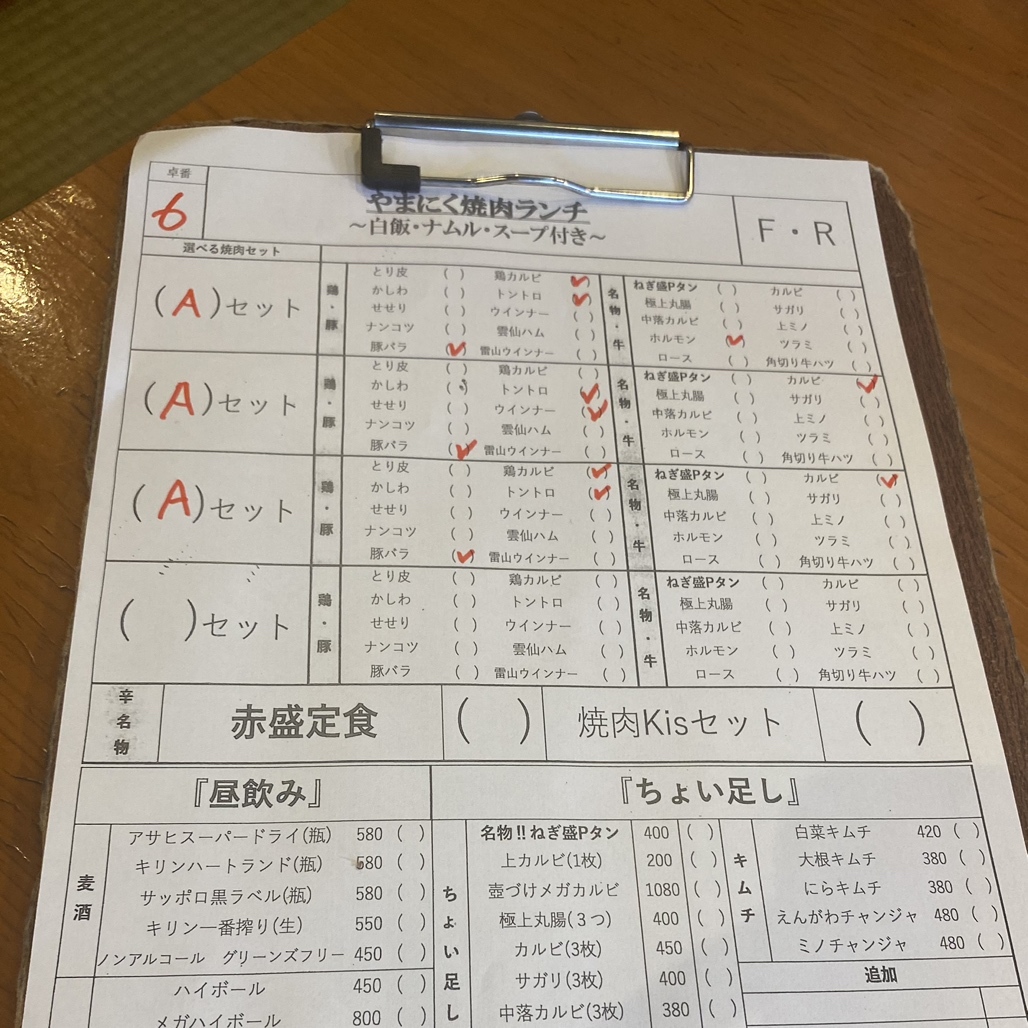 卓番
6
やまにく焼肉ランチ
～白飯・ナムル・スープ付き～
F・R
選べる焼肉セット
(A)セット
鶏・豚
とり皮 ( ) 鶏カルビ (✓)
かしわ ( ) トントロ (✓)
せせり ( ) ウインナー ( )
ナンコツ ( ) 雲仙ハム ( )
豚バラ (✓) 雷山ウインナー ( )
名物・牛
ねぎ盛Pタン ( ) カルビ ( )
極上丸腸 ( ) サガリ ( )
中落カルビ ( ) 上ミノ ( )
ホルモン (✓) ツラミ ( )
ロース ( ) 角切り牛ハツ ( )
(A)セット
鶏・豚
とり皮 ( ) 鶏カルビ ( )
かしわ ( ) トントロ (✓)
せせり ( ) ウインナー (✓)
ナンコツ ( ) 雲仙ハム ( )
豚バラ (✓) 雷山ウインナー ( )
名物・牛
ねぎ盛Pタン ( ) カルビ (✓)
極上丸腸 ( ) サガリ ( )
中落カルビ ( ) 上ミノ ( )
ホルモン ( ) ツラミ ( )
ロース ( ) 角切り牛ハツ ( )
(A)セット
鶏・豚
とり皮 ( ) 鶏カルビ (✓)
かしわ ( ) トントロ (✓)
せせり ( ) ウインナー ( )
ナンコツ ( ) 雲仙ハム ( )
豚バラ (✓) 雷山ウインナー ( )
名物・牛
ねぎ盛Pタン ( ) カルビ (✓)
極上丸腸 ( ) サガリ ( )
中落カルビ ( ) 上ミノ ( )
ホルモン ( ) ツラミ ( )
ロース ( ) 角切り牛ハツ ( )
( )セット
鶏・豚
とり皮 ( ) 鶏カルビ ( )
かしわ ( ) トントロ ( )
せせり ( ) ウインナー ( )
ナンコツ ( ) 雲仙ハム ( )
豚バラ ( ) 雷山ウインナー ( )
名物・牛
ねぎ盛Pタン ( ) カルビ ( )
極上丸腸 ( ) サガリ ( )
中落カルビ ( ) 上ミノ ( )
ホルモン ( ) ツラミ ( )
ロース ( ) 角切り牛ハツ ( )
辛名物
赤盛定食 ( ) 焼肉Kisセット ( )
『昼飲み』
麦酒
アサヒスーパードライ(瓶) 580 ( )
キリンハートランド(瓶) 580 ( )
サッポロ黒ラベル(瓶) 580 ( )
キリン一番搾り(生) 550 ( )
ノンアルコール グリーンズフリー 450 ( )
ハイボール 450 ( )
メガハイボール 800 ( )
『ちょい足し』
ちょい足し
名物!!ねぎ盛Pタン 400 ( )
上カルビ(1枚) 200 ( )
壺づけメガカルビ 1080 ( )
極上丸腸(3つ) 400 ( )
カルビ(3枚) 450 ( )
サガリ(3枚) 400 ( )
中落カルビ(3枚) 380 ( )
キムチ
白菜キムチ 420 ( )
大根キムチ 380 ( )
にらキムチ 380 ( )
えんがわチャンジャ 480 ( )
ミノチャンジャ 480 ( )
追加